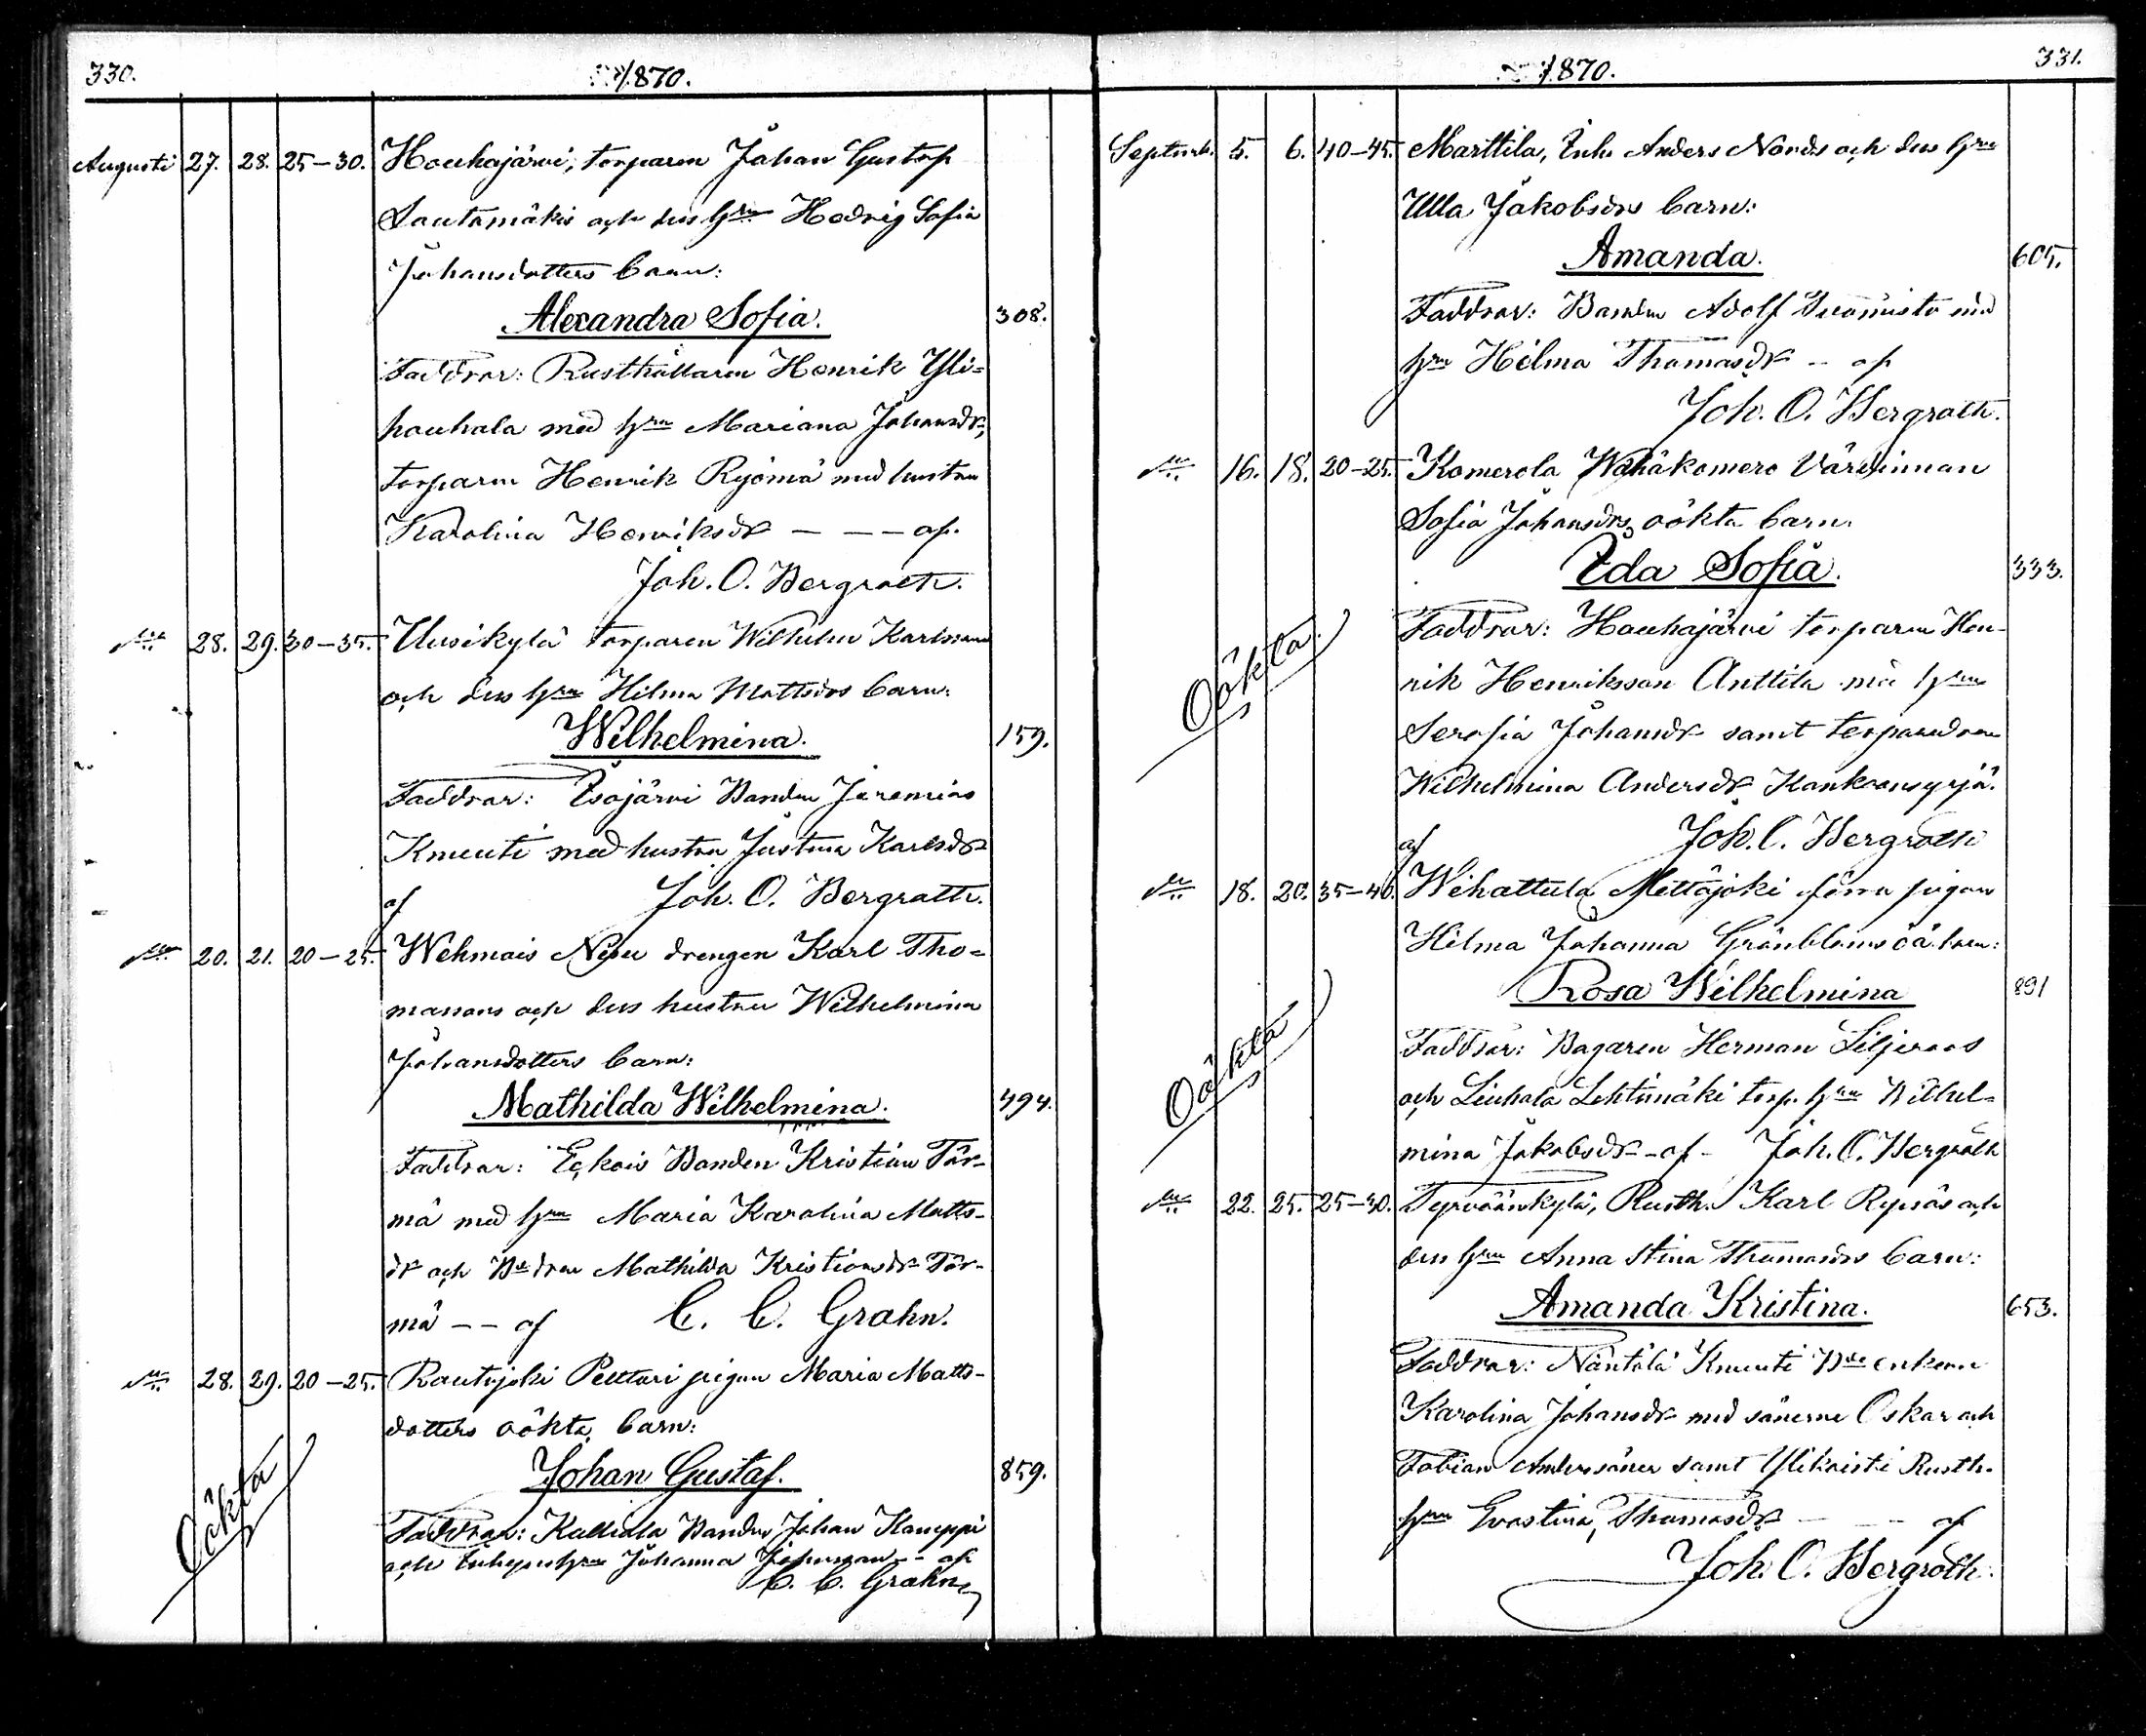 330.
1870.
Augusti 27. 28. 25-30. Houhajärvi, torparen Johan Gustaf
Sautamäkis och dess hru Hedvig Sofia
Johansdotters barn:
Alexandra Sofia. 308.
Faddrar: Rusthållaren Henrik Yli=
houhala med hru Mariana Johansdr,
torparen Henrik Ryömä med hustru
Karolina Henriksdr — — — af
Joh. O. Bergroth.
28. 29. 30-35. Uusikylä torparen Wilhelm Karlssons
och dess hru Hilma Mattsdrs barn:
Wilhelmina. 159.
Faddrar: Isojärvi Bonden Jeremias
Kneuti med hustru Justina Karlsdr
af Joh. O. Bergroth.
20. 21. 20-25. Wehmais Nipu drengen Karl Tho=
massons och dess hustru Wilhelmina
Johansdotters barn:
Mathilda Wilhelmina. 494.
Faddrar: Bonden Kristian Tör-
mä med hru Maria Karolina Matts-
dr och Mathilda Kristiansdr Tör-
mä — — af C. C. Grahn.
28. 29. 20-25. Rautajoki Pelttari pigan Maria Matts-
dotters oökta barn:
Johan Gustaf. 859.
Oökta
Faddrar: Kalliala Bonden Johan Knuppi
och hru Johanna — af
C. C. Grahn
331.
1870.
Septemb. 5. 6. 40-45. Marttila, Inh. Anders Nords och dess hru
Ulla Jakobsdrs barn:
Amanda. 605.
Faddrar: Bonden Adolf med
hru Hilma Thomasdr — af
Joh. O. Bergroth.
16. 18. 20-25. Komerola Wähäkomero Värdinnan
Sofia Johansdrs oökta barn.
Ida Sofia. 333.
Oökta.
Faddrar: Houhajärvi torparen Hen-
rik Henriksson Anttila hru
Serafia Johansdr samt
Wilhelmina Andersdr
af Joh. O. Bergroth
18. 20. 35-40. Wihattula Mettäjoki pigan
Hilma Johanna Grönbloms oä. barn:
Rosa Wilhelmina 891
Oökta
Faddrar: Bagaren Herman Liljeroos
och Liuhala Lehtimäki torp. hru Wilhel=
mina Jakobsdr - af - Joh. O. Bergroth
22. 25. 25-30. Tyrväänkylä, Rusth. Karl Rypsäs och
dess hru Anna Stina Thomasdrs barn:
Amanda Kristina. 653.
Faddrar: Näntölä Kneuti enkan
Karolina Johansdr med sönerne Oskar och
Fabian Anderssöner samt Ylikaisti Rusth.
hru Evastina Thomasdr — — af
Joh. O. Bergroth.